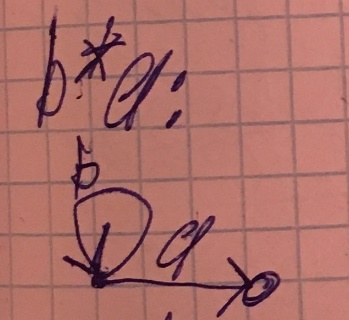 b*a:
b
a